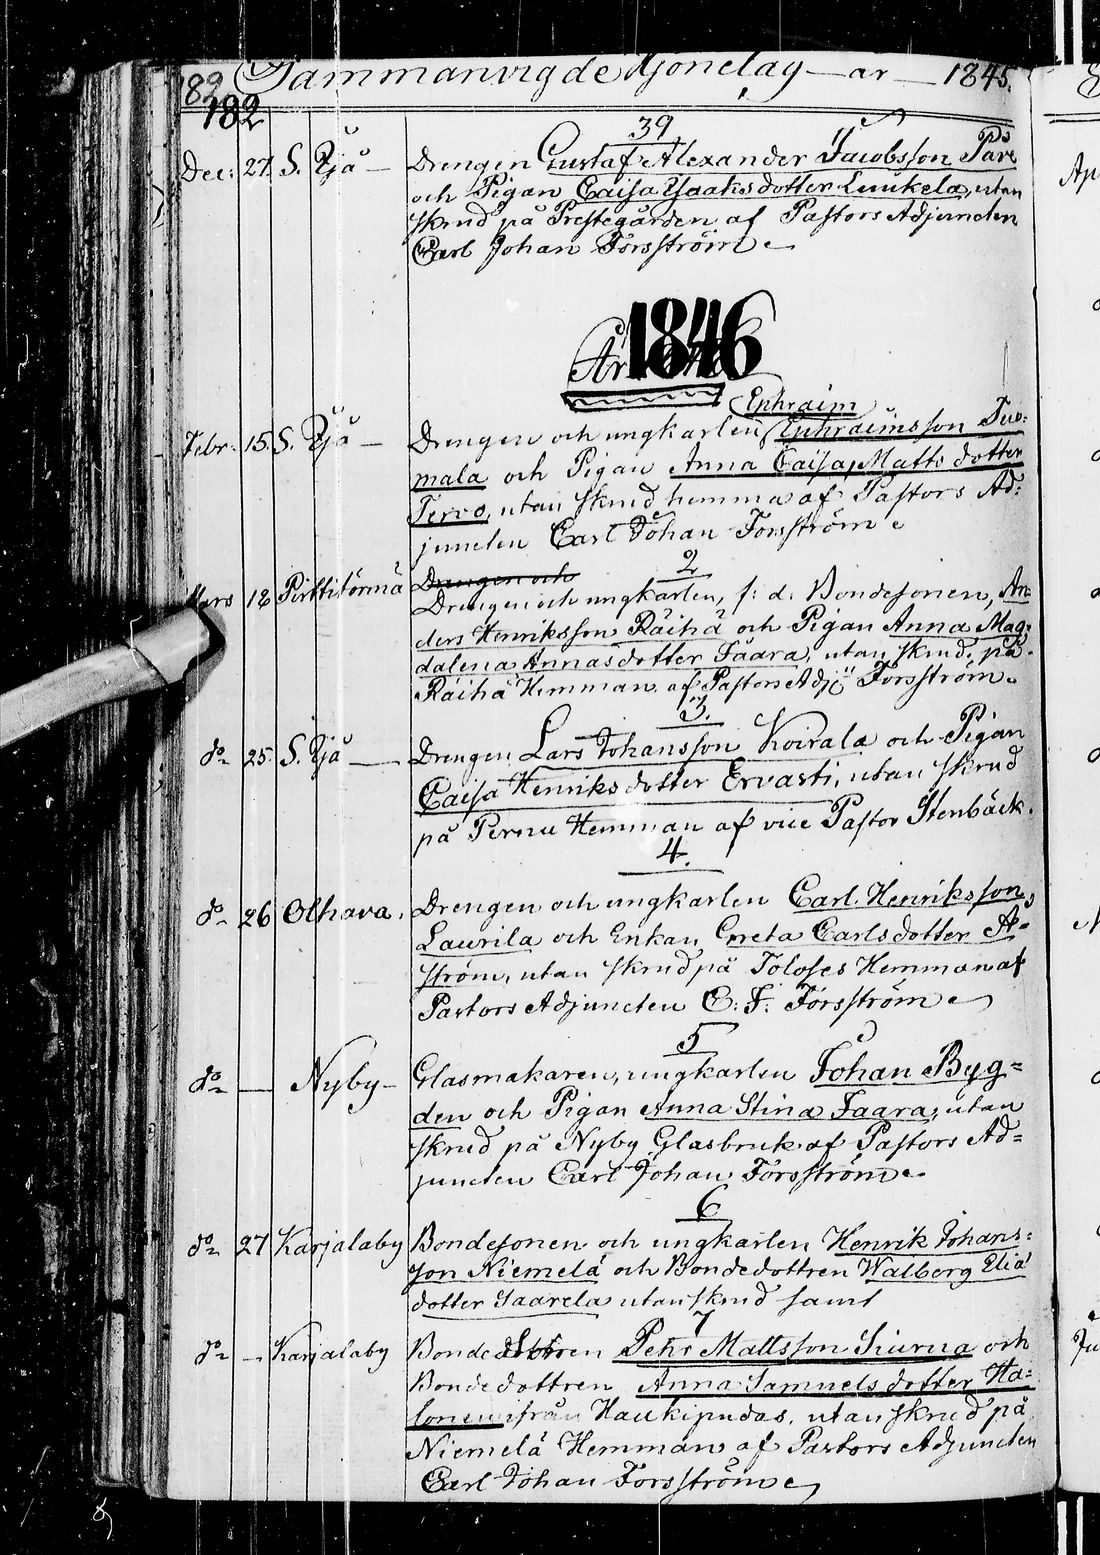 182 Sammanvigde Hjonelag — år — 1845.
182
39
Dec: 27. S. Ijå — Drengen Gustaf Alexander Jacobsson
och Pigan Caisa Isaaksdotter Luukela, utan
skrud på Prestegården af Pastors Adjuncten
Carl Johan Forsström
1846
År
Ephraim
Febr: 15. S. Ijå — Drengen och ungkarlen Ephraimsson Tuo=
mala och Pigan Anna Caisa Matts dotter
Tervo, utan skrud hemma af Pastors Ad=
juncten Carl Johan Forsström
2
Drengen och
Mars 18 Pirttitörmä Drengen och ungkarlen, f: d: Bondesonen, An
ders Henriksson Räihä och Pigan Anna Mag=
dalena Annasdotter Taara, utan skrud, på
Räihä Hemman af Pastors Adj: Forsström
3.
do 25. S. Ijå — Drengen Lars Johansson Koirala och Pigan
Caisa Henriksdotter Ervasti, utan skrud
på Pernu Hemman af vice Pastor Stenbäck.
4.
do 26 Olhava. Drengen och ungkarlen Carl Henriksson
Laurila och Enkan Greta Carlsdotter Å=
ström, utan skrud på Toloses Hemman af
Pastors Adjuncten C: J: Forsström
5
do — Nyby — Glasmakaren, ungkarlen Johan Byg=
den och Pigan Anna Stina Taara, utan
skrud på Nyby Glasbruk af Pastors Ad=
juncten Carl Johan Forsström
6
do 27 Karjalaby Bondesonen och ungkarlen Henrik Johans=
son Niemelä och Bondedottren Walborg Elia
dotter Saarela utan skrud samt
7
do — Karjalaby Bonde Pehr Mattsson Kiurua och
Bondedottren Anna Samuels dotter Ha=
lonen från Haukipudas, utan skrud på
Niemelä Hemman af Pastors Adjuncten
Carl Johan Forsström